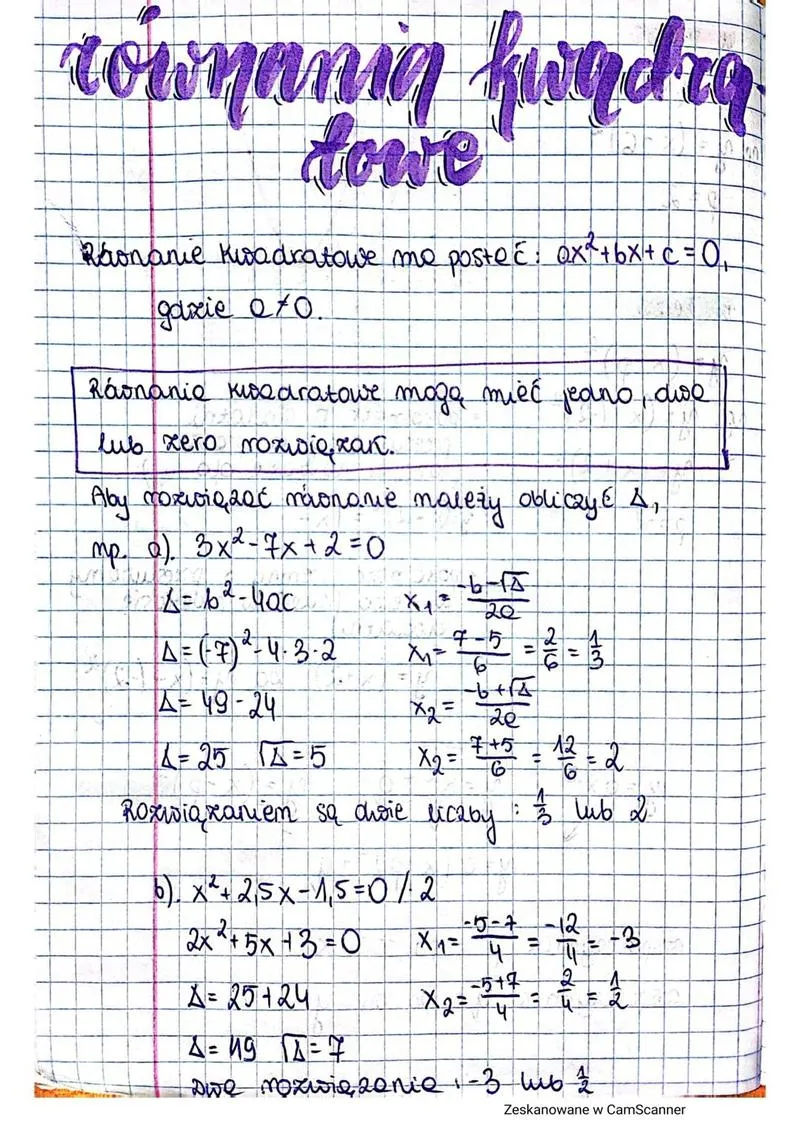 równania kwadra-
towe
Równanie kwadratowe ma postać: ax²+bx+c=0,
gdzie a≠0.
Równania kwadratowe mogą mieć jedno, dwa
lub zero rozwiązań.
Aby rozwiązać równanie należy obliczyć Δ,
np. a). 3x²-7x+2=0
Δ=b²-4ac x₁= (-b-√Δ)/2a
Δ=(-7)²-4·3·2 x₁= (7-5)/6 = 2/6 = 1/3
Δ=49-24 x₂= (-b+√Δ)/2a
Δ=25 √Δ=5 x₂= (7+5)/6 = 12/6 = 2
Rozwiązaniem są dwie liczby: 1/3 lub 2
b). x²+2,5x-1,5=0 /·2
2x²+5x+3=0 x₁= (-5-7)/4 = -12/4 = -3
Δ=25+24 x₂= (-5+7)/4 = 2/4 = 1/2
Δ=49 √Δ=7
Dwa rozwiązania: -3 lub 1/2
Zeskanowane w CamScanner